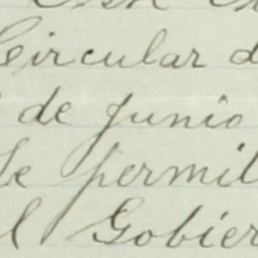 Circular d
de junio
se permit
l Gobier